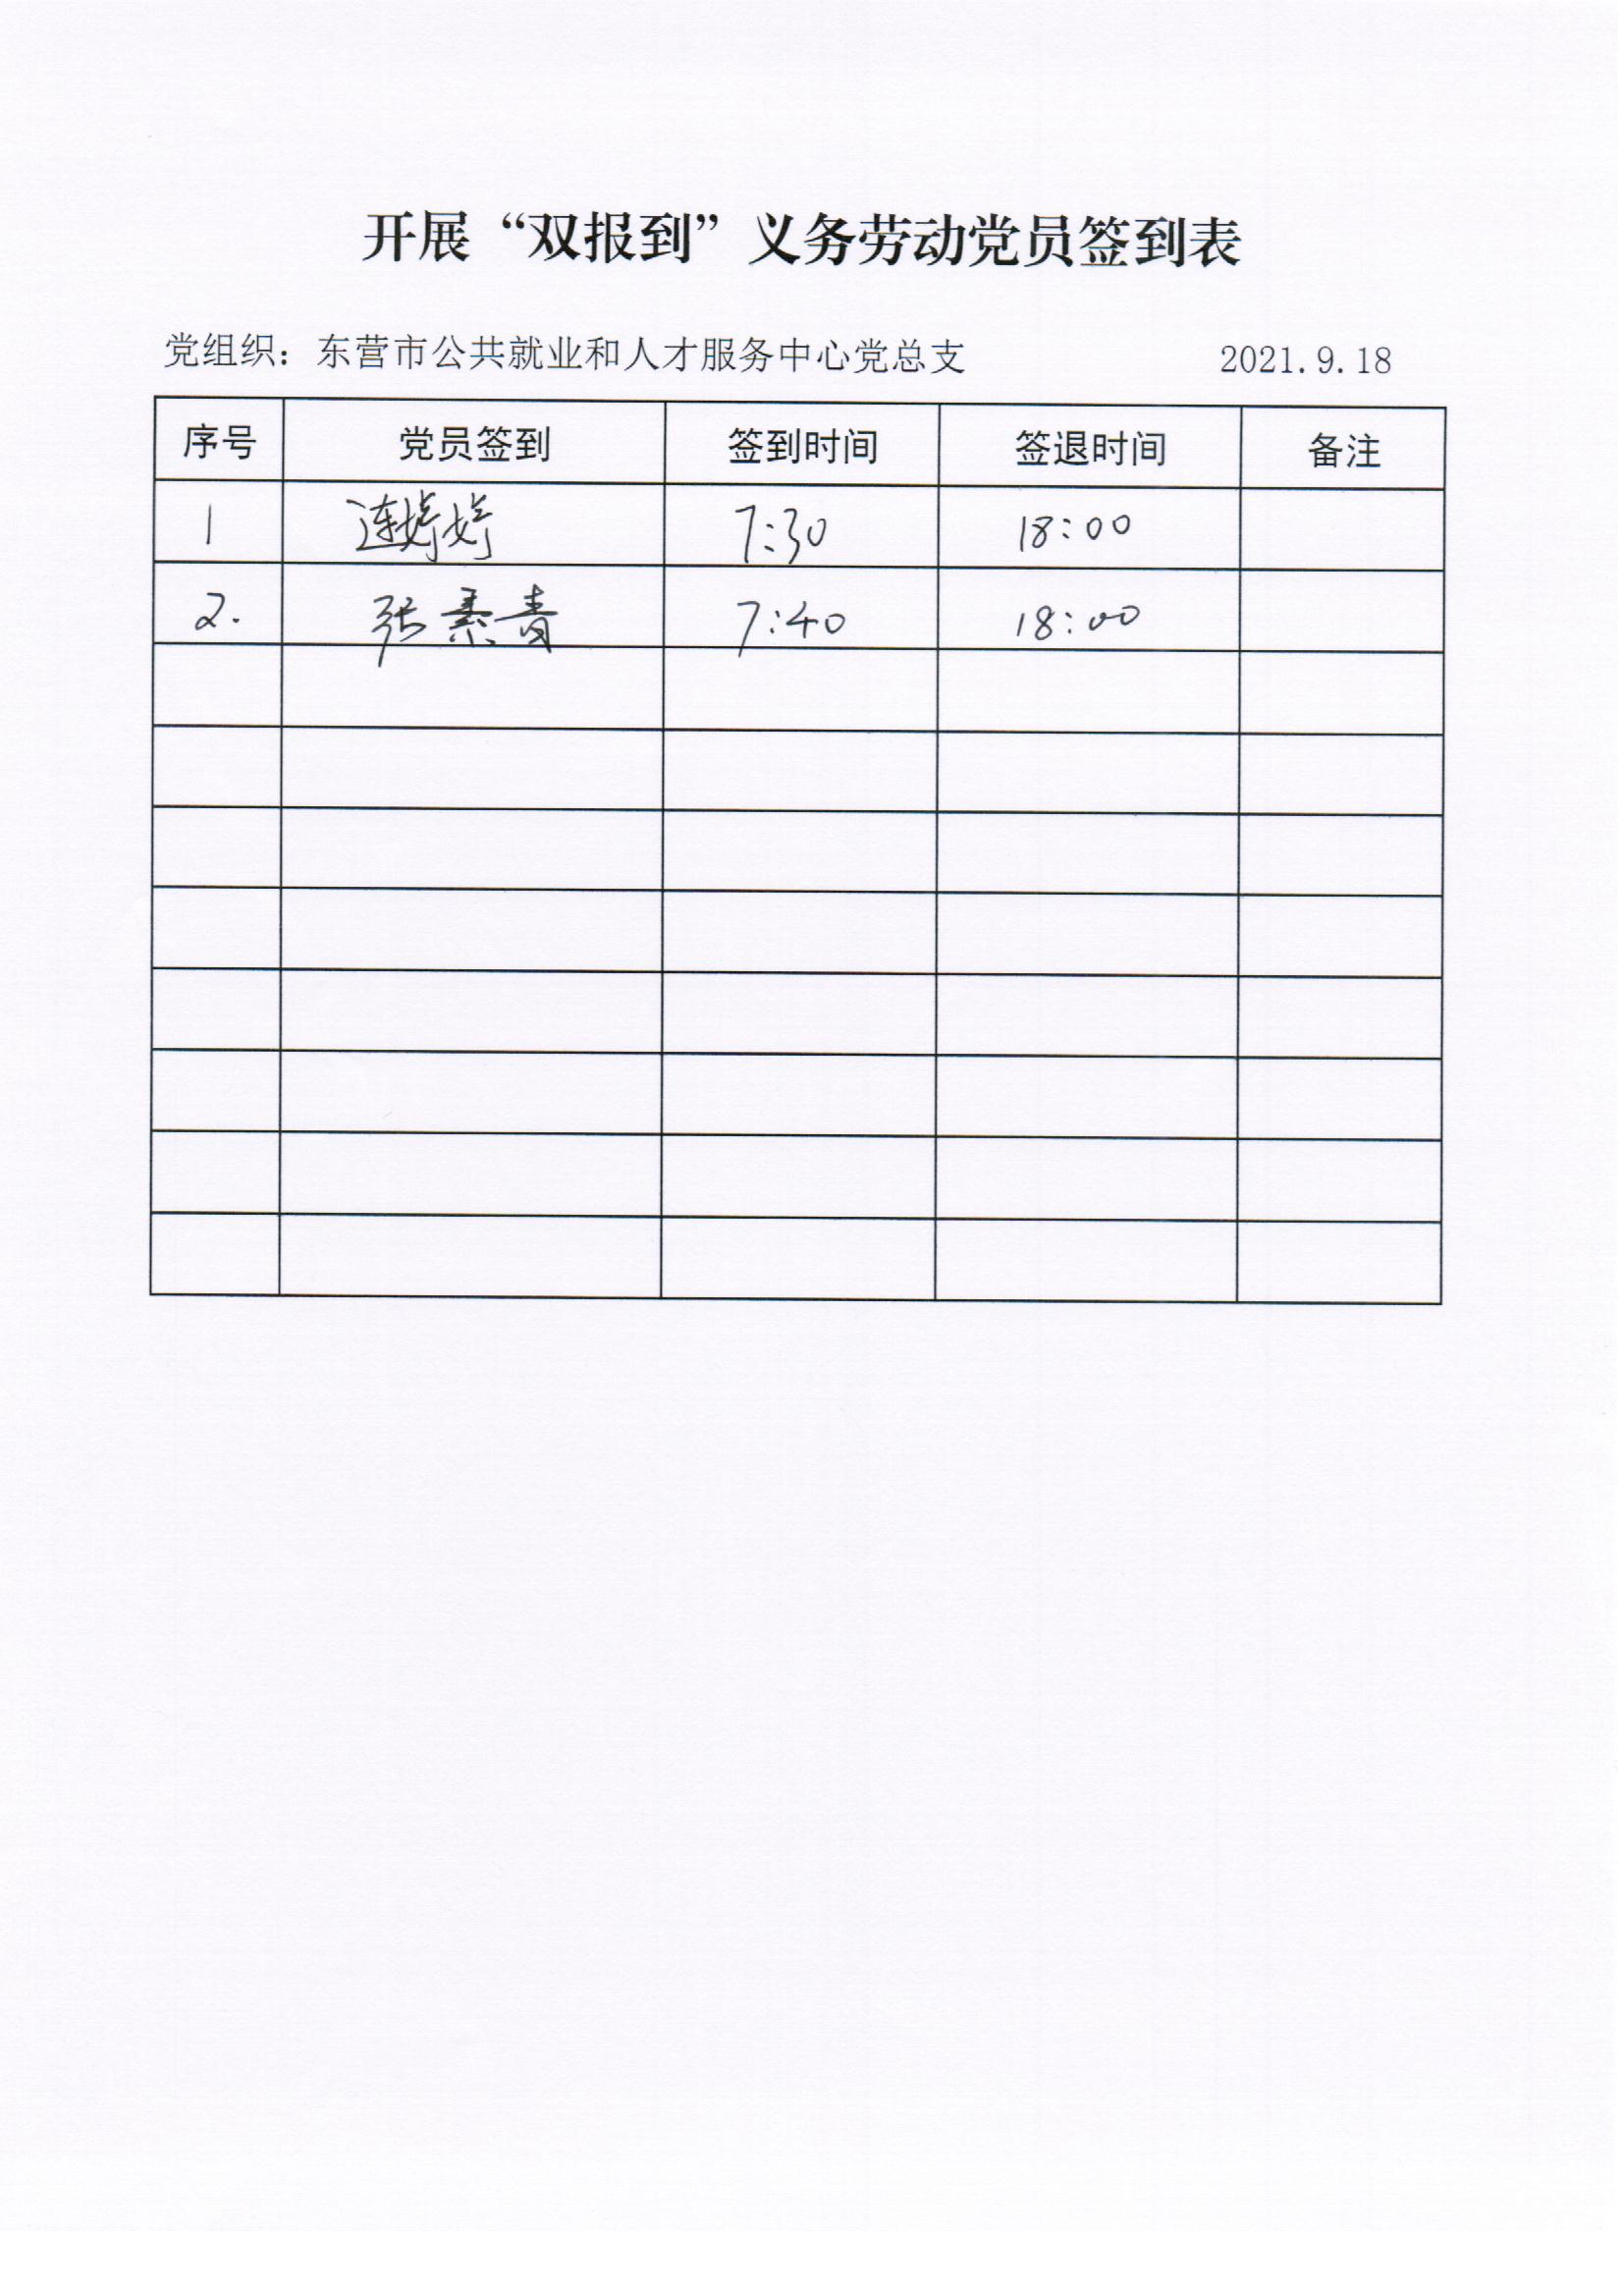 开展“双报到”义务劳动党员签到表
党组织：东营市公共就业和人才服务中心党总支 2021.9.18
序号 党员签到 签到时间 签退时间 备注
1 连婷婷 7:30 18:00
2. 张素青 7:40 18:00